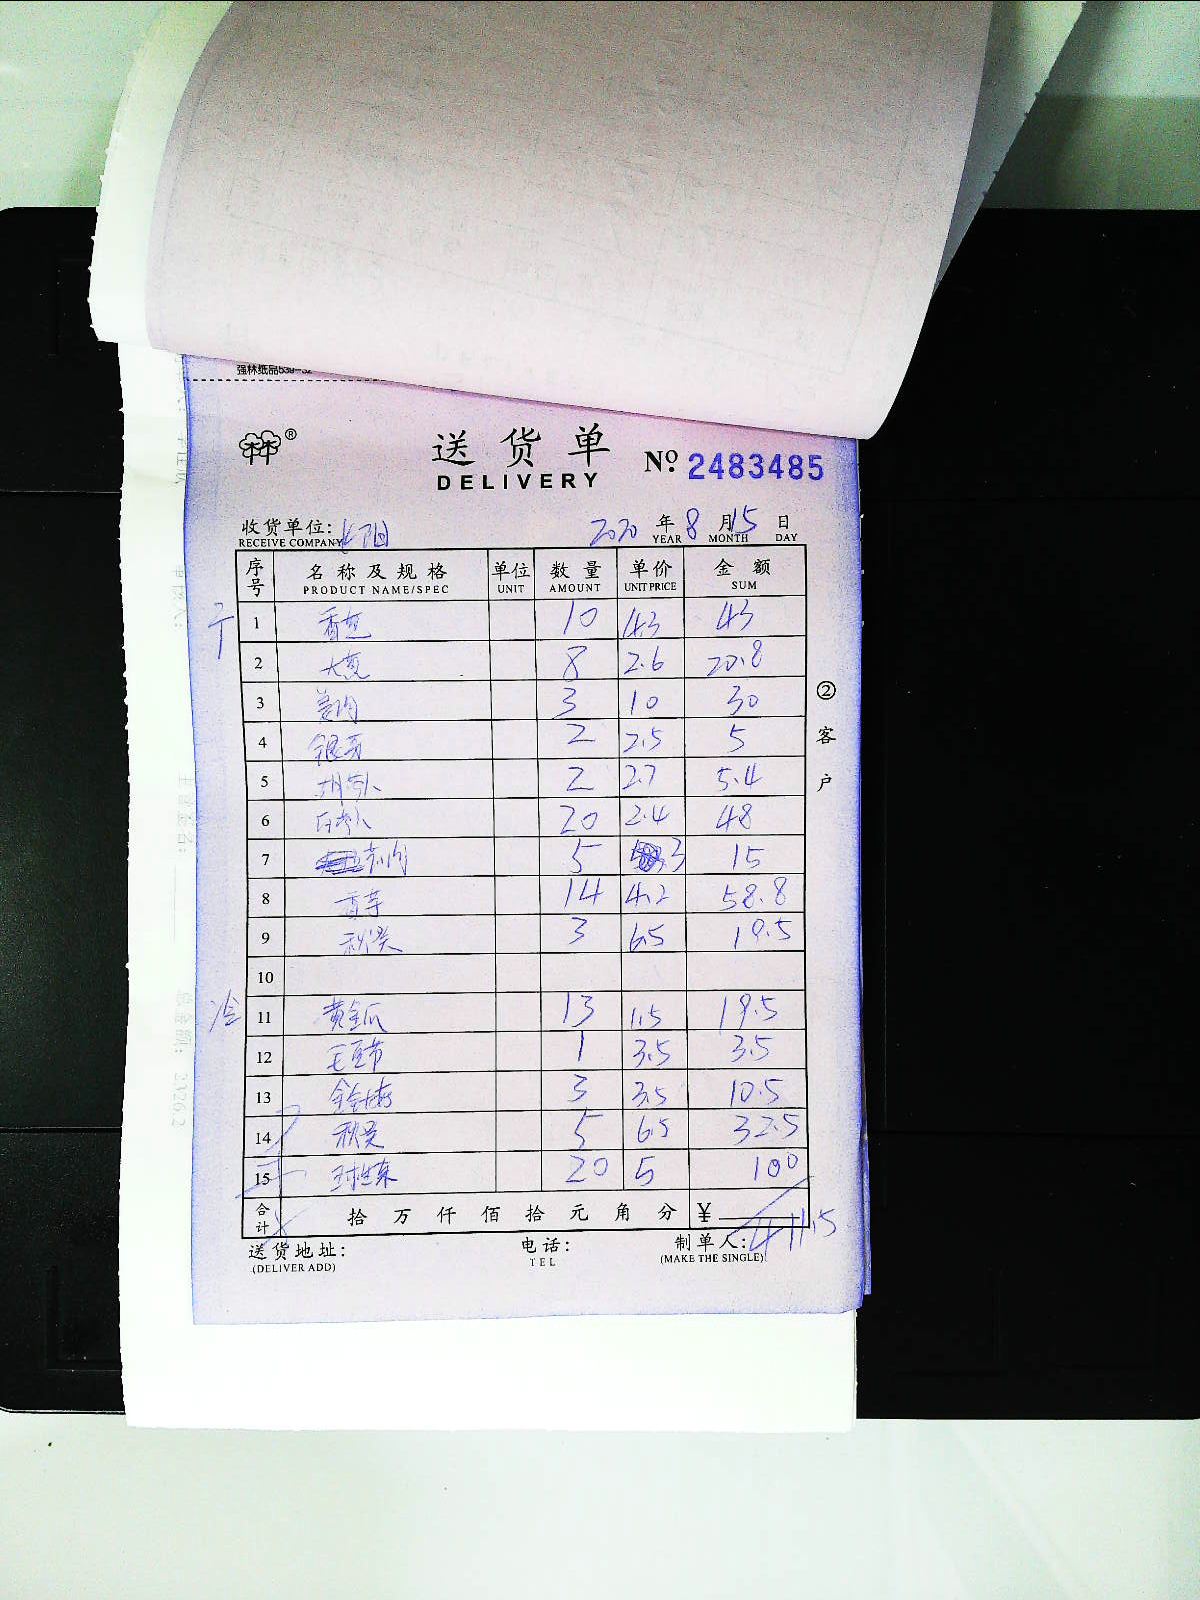 强林纸品538-32
送货单 №. 2483485
DELIVERY
收货单位: 2020 年 8 月 15 日
RECEIVE COMPANY YEAR MONTH DAY
序号 名称及规格 单位 数量 单价 金额
PRODUCT NAME/SPEC UNIT AMOUNT UNIT PRICE SUM
1 香芹 10 4.3 43
2 大葱 8 2.6 20.8
3 姜肉 3 10 30
4 银芽 2 2.5 5
5 胡卜 2 2.7 5.4
6 白卜 20 2.4 48
7 5 3 15
8 香芋 14 4.2 58.8
9 秋葵 3 6.5 19.5
10
冷 11 黄金瓜 13 1.5 19.5
12 毛豆节 1 3.5 3.5
13 3 3.5 10.5
14 秋葵 5 6.5 32.5
15 20 5 100
合计 拾万仟佰拾元角分 ¥ 411.5
送货地址: 电话: 制单人:
(DELIVER ADD) TEL (MAKE THE SINGLE)
②客户